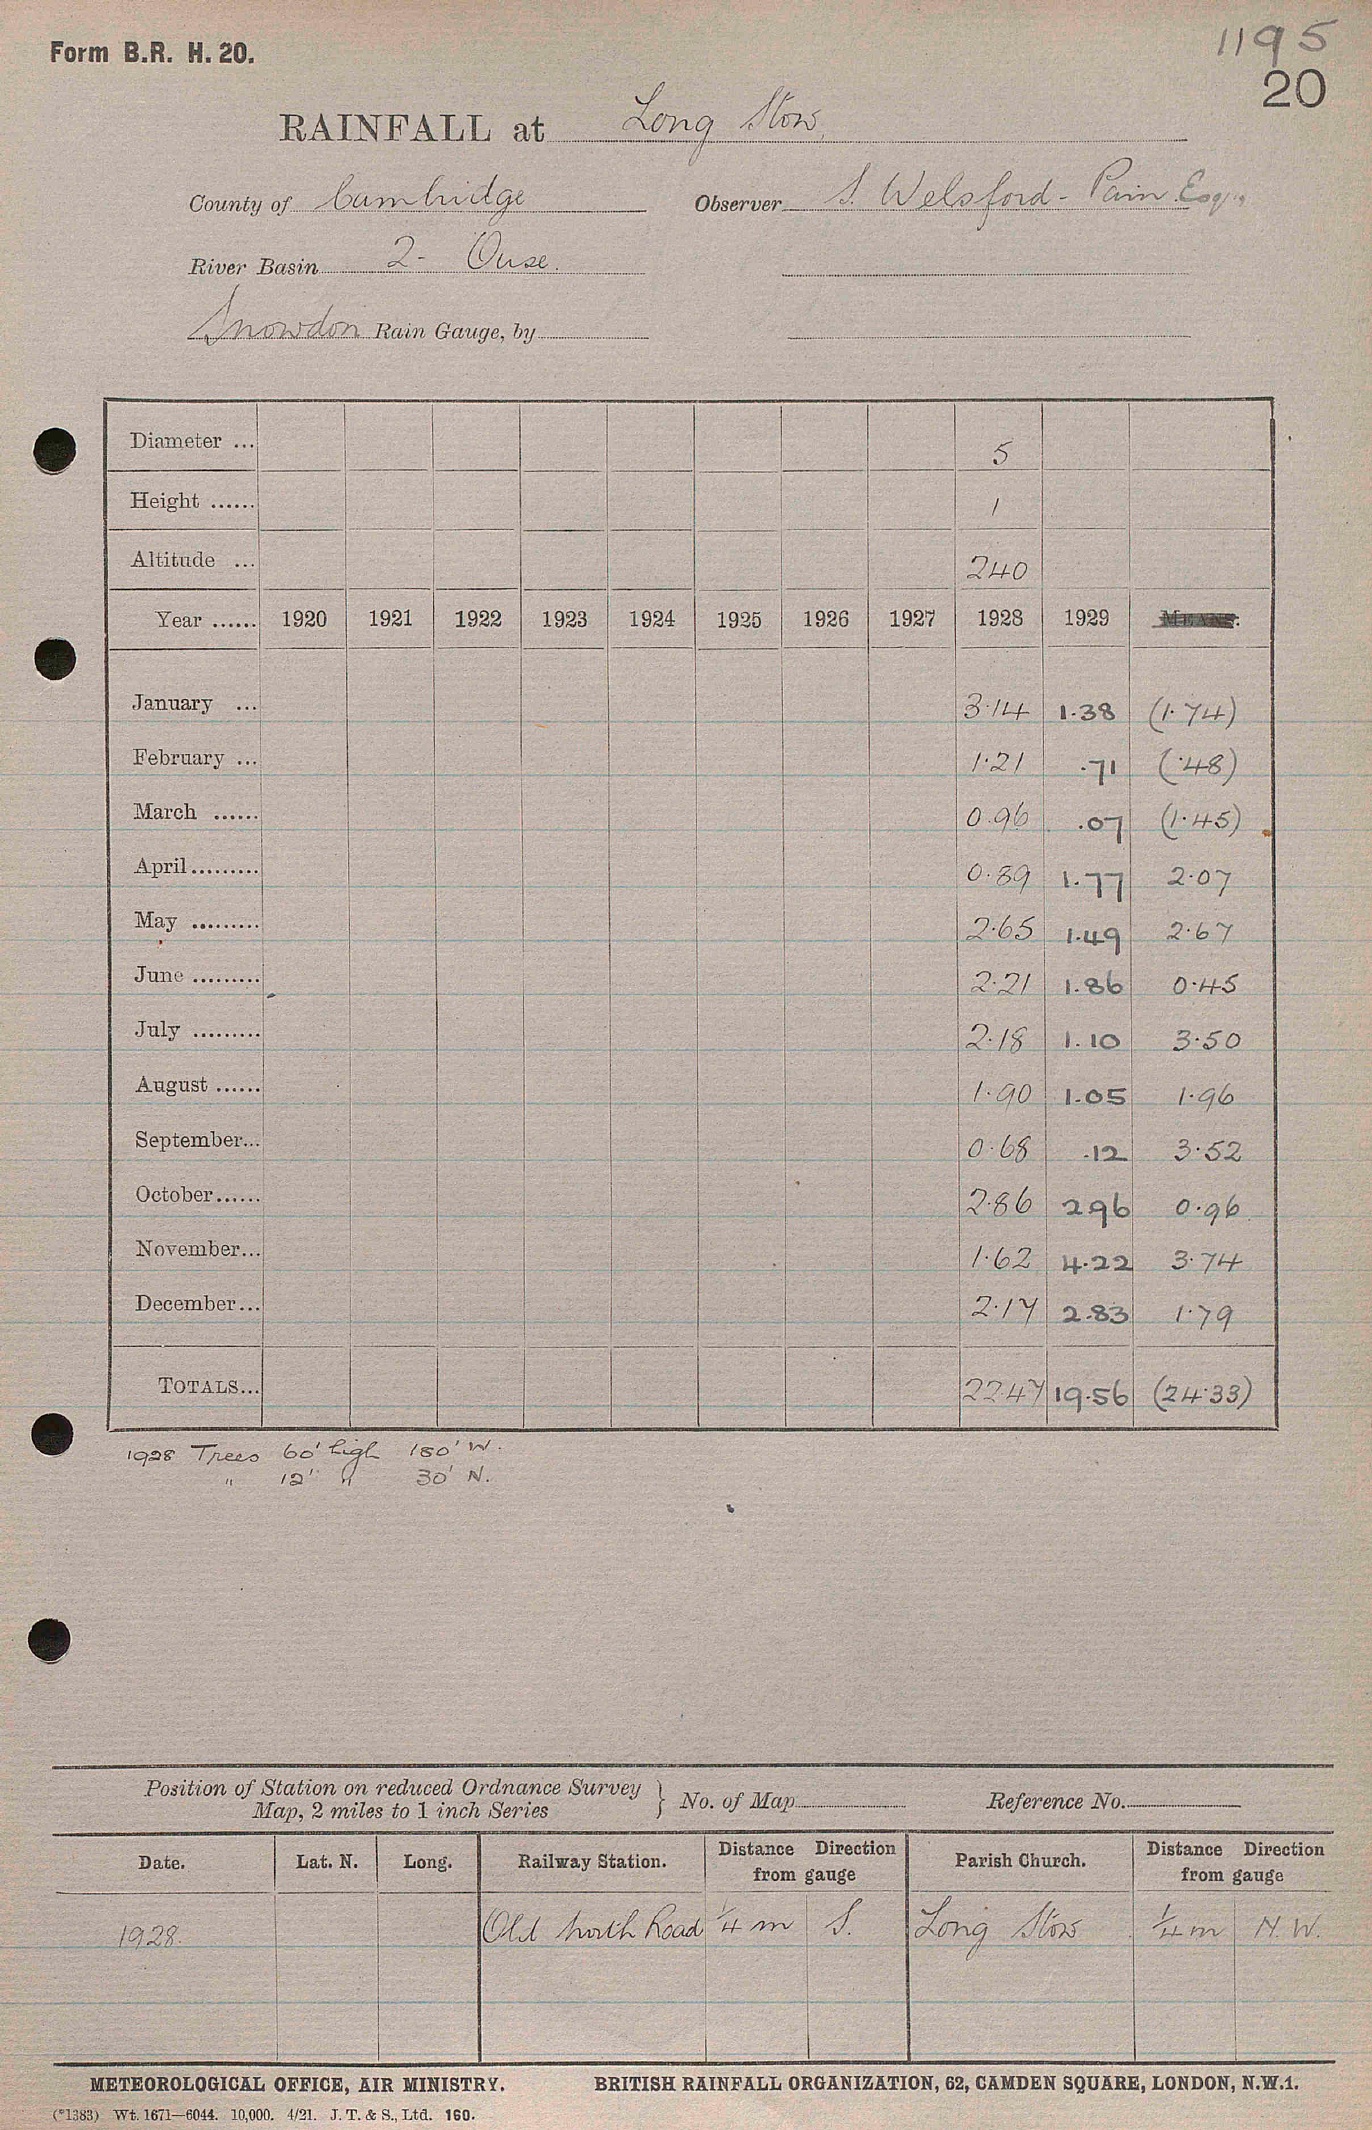 Form B.R. H. 20.
1195
20
RAINFALL at Long Stow.
County of Cambridge Observer S. Welsford-Pain Esq.,
River Basin 2- Ouse.
Snowdon Rain Gauge, by
Diameter ... 5
Height ...... 1
Altitude ... 240
Year ...... 1920 1921 1922 1923 1924 1925 1926 1927 1928 1929 MEANS.
January ... 3.14 1.38 (1.74)
February ... 1.21 .71 (.48)
March ...... 0.96 .07 (1.45)
April ......... 0.89 1.77 2.07
May ......... 2.65 1.49 2.67
June ......... 2.21 1.86 0.45
July ......... 2.18 1.10 3.50
August ...... 1.90 1.05 1.96
September... 0.68 .12 3.52
October ...... 2.86 2.96 0.96
November... 1.62 4.22 3.74
December... 2.17 2.83 1.79
TOTALS... 22.47 19.56 (24.33)
1928 Trees 60' high 180' W.
" 12' " 30' N.
Position of Station on reduced Ordnance Survey
Map, 2 miles to 1 inch Series } No. of Map Reference No.
Date. Lat. N. Long. Railway Station. Distance Direction from gauge Parish Church. Distance Direction from gauge
1928. Old North Road 1/4 m S. Long Stow 1/4 m N.W.
METEOROLOGICAL OFFICE, AIR MINISTRY. BRITISH RAINFALL ORGANIZATION, 62, CAMDEN SQUARE, LONDON, N.W.1.
(*1383) Wt. 1671—6044. 10,000. 4/21. J. T. & S., Ltd. 160.